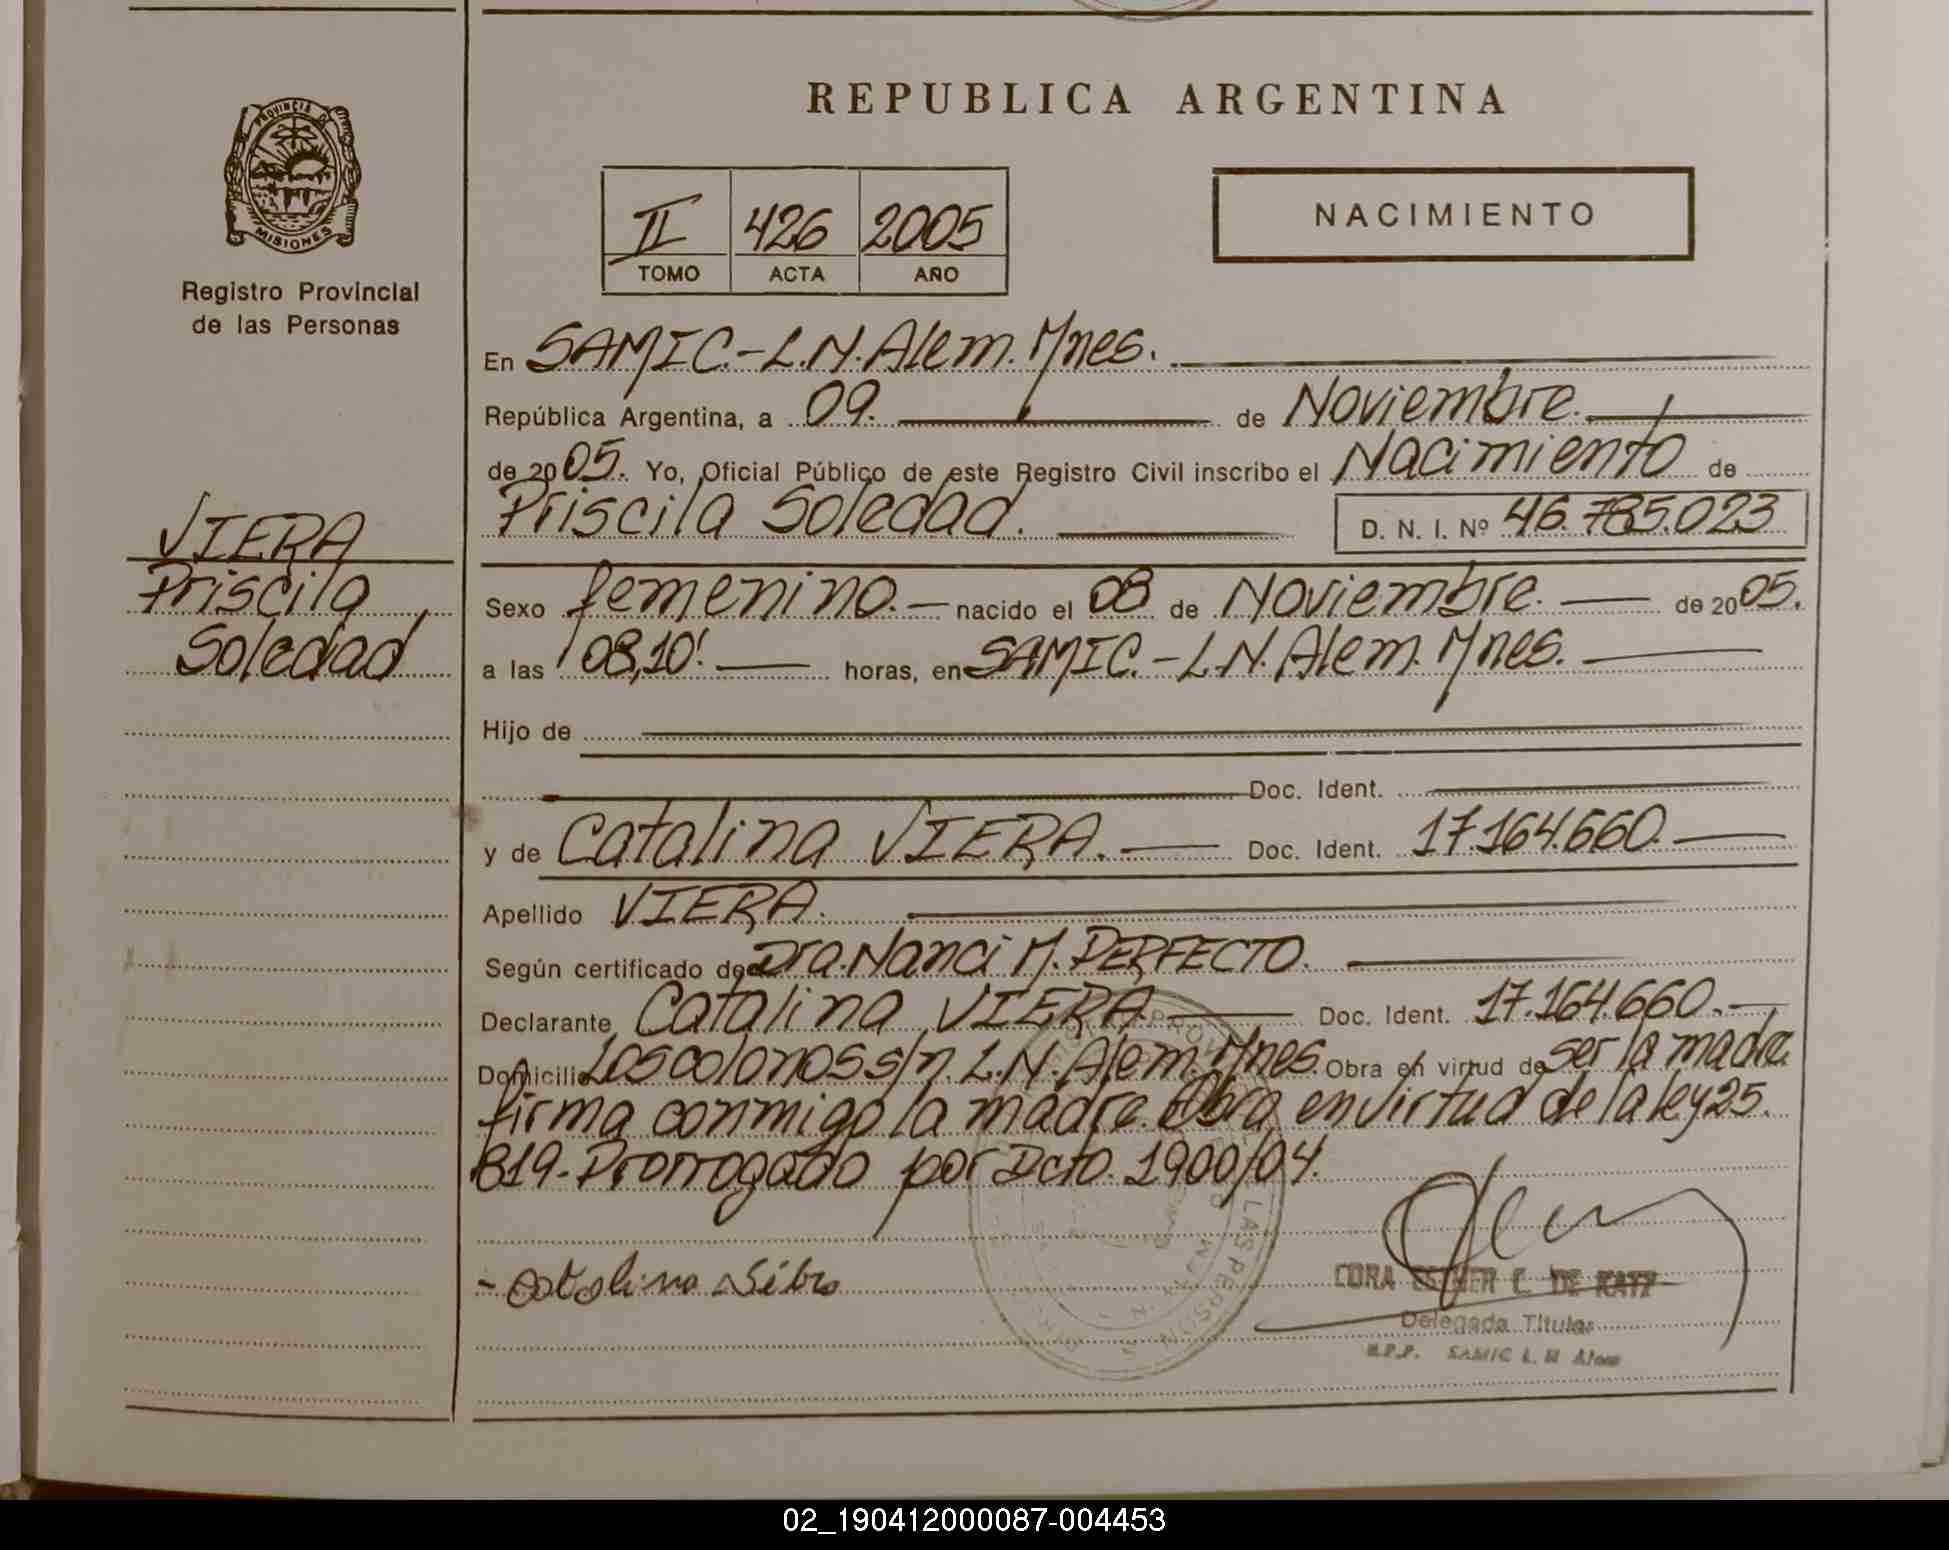 REPUBLICA ARGENTINA
PROVINCIA DE
MISIONES
Registro Provincial
de las Personas
II 426 2005
TOMO ACTA AÑO
NACIMIENTO
En SAMIC.-L.N.Alem.Mnes.
República Argentina, a 09. de Noviembre.
de 2005. Yo, Oficial Público de este Registro Civil inscribo el Nacimiento de
Priscila Soledad. D. N. I. Nº 46.785.023
VIERA
Priscila
Soledad
Sexo femenino. nacido el 08 de Noviembre. de 2005.
a las 08,10'. horas, en SAMIC.-L.N.Alem.Mnes.
Hijo de
Doc. Ident.
y de Catalina VIERA. Doc. Ident. 17.164.660.
Apellido VIERA.
Según certificado de Dra.Nanci M. PERFECTO.
Declarante Catalina VIERA Doc. Ident. 17.164.660.-
Domicilio Los colonos s/n. L.N.Alem.Mnes. Obra en virtud de ser la madre
firma conmigo la madre. Obra en virtud de la ley 25.
819-Prorrogado por Dcto. 1900/04.
CORA ESTHER C. DE KATZ
Delegada Titular
R.P.P. SAMIC L. N Alem
02_190412000087-004453